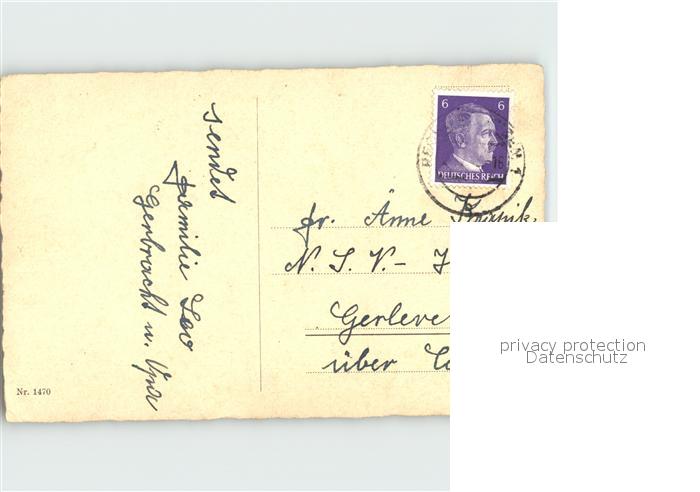 sendet
Familie Leo
Gerbracht u.
Nr. 1470
6 6
DEUTSCHES REICH
16
1
Fr. Änne
N. S. V. -
Gerleve
über
privacy protection
Datenschutz